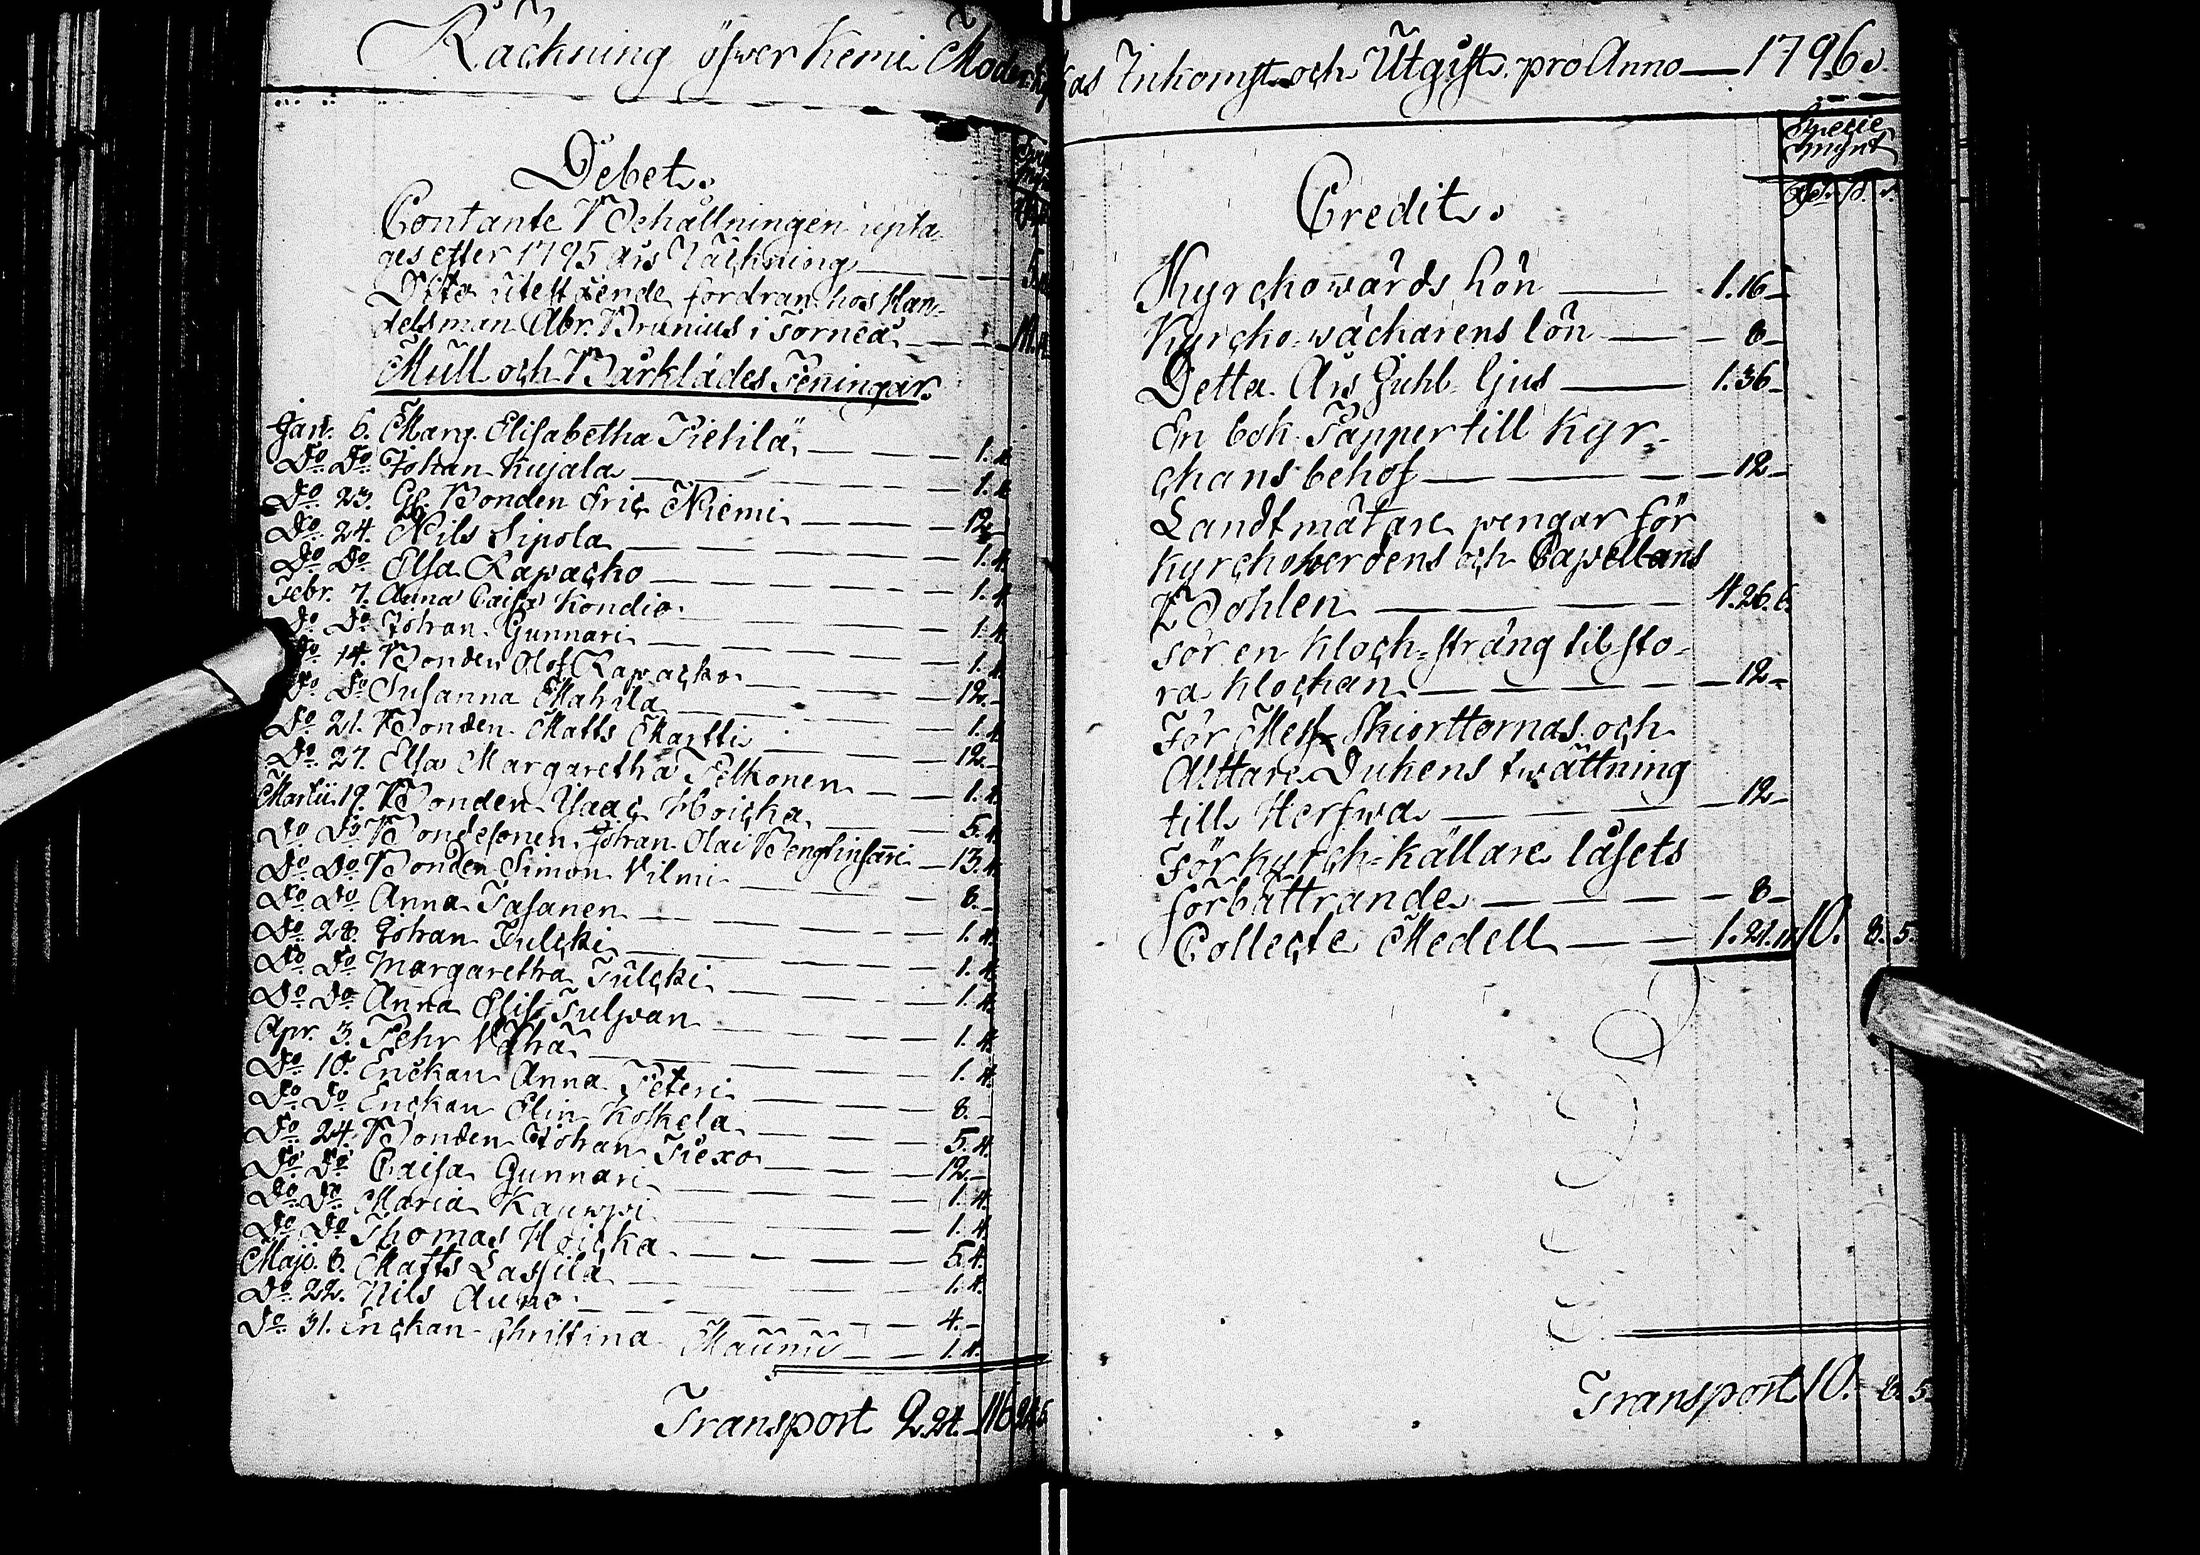 Räckning öfwer Kemi Moder Kyrckas Inkomst och Utgift pro Anno 1796.
Debet.
Contante Behållningen upta-
ges efter 1795 års Räckning
Ditto utestående fordran hos Han-
delsman Abr. Brunius i Torneå
Mull och Bårklädes Penningar.
Jan. 6. Marg. Elisabetha Pietilä 1.4
Do Do Johan Kujala 1.4
Do 23. Gl. Bonden Eric Niemi 12.
Do 24. Nils Sipola 1.4
Do Do Elsa Rapacko 1.4
Febr. 7. Anna Caisa Kondio 1.4
Do Do Johan Gunnari 1.4
Do 14. Bonden Olof Rapacko 12.
Do Do Susanna Mahila 1.4
Do 21. Bonden Matts Martti 12.
Do 27. Elsa Margaretha Pelkonen 1.4
Martii 19. Bonden Isaac Hoicka 5.4
Do Do Bondesonen Johan Olai 13.4
Do Do Bonden Simon Vilmi 8.
Do Do Anna Tasanen 1.4
Do 28. Johan Julcki 1.4
Do Do Margaretha Julcki 1.4
Do Do Anna Elis. 1.4
Apr. 3. Pehr Vähä 1.4
Do 10. Enckan Anna Peteri 8.
Do Do Enckan Elin Koskela 5.4
Do 24. Bonden Johan Piexo 12.
Do Do Caisa Gunnari 1.4
Do Do Maria Kauppi 1.4
Do Do Thomas Hoicka 5.4
Maji 8. Matts Lassila 1.4
Do 22. Nils Auno 4.
Do 31. Enckan Christina Maunu 1.4
Transport 2.24. 116
Specie
mynt
Credit.
Kyrckowärds Lön 1.16
Kyrcko-wäckarens lön 8
Detta Års Juhl-ljus 1.36
En bok Papper till Kyr-
ckans behof 12
Landtmätare pengar för
Kyrckoherdens och Capellans
Bohlen 4.26.6.
För en klock-sträng til sto-
ra klockan 12
För Mess-Skiorttornas och
Alttare Dukens twättning
till Herfwa 12
För kyrck-källare låsets
förbättrande 8
Collecte Medell 1.21.11 10. 8. 5.
Transport 10. 8. 5.